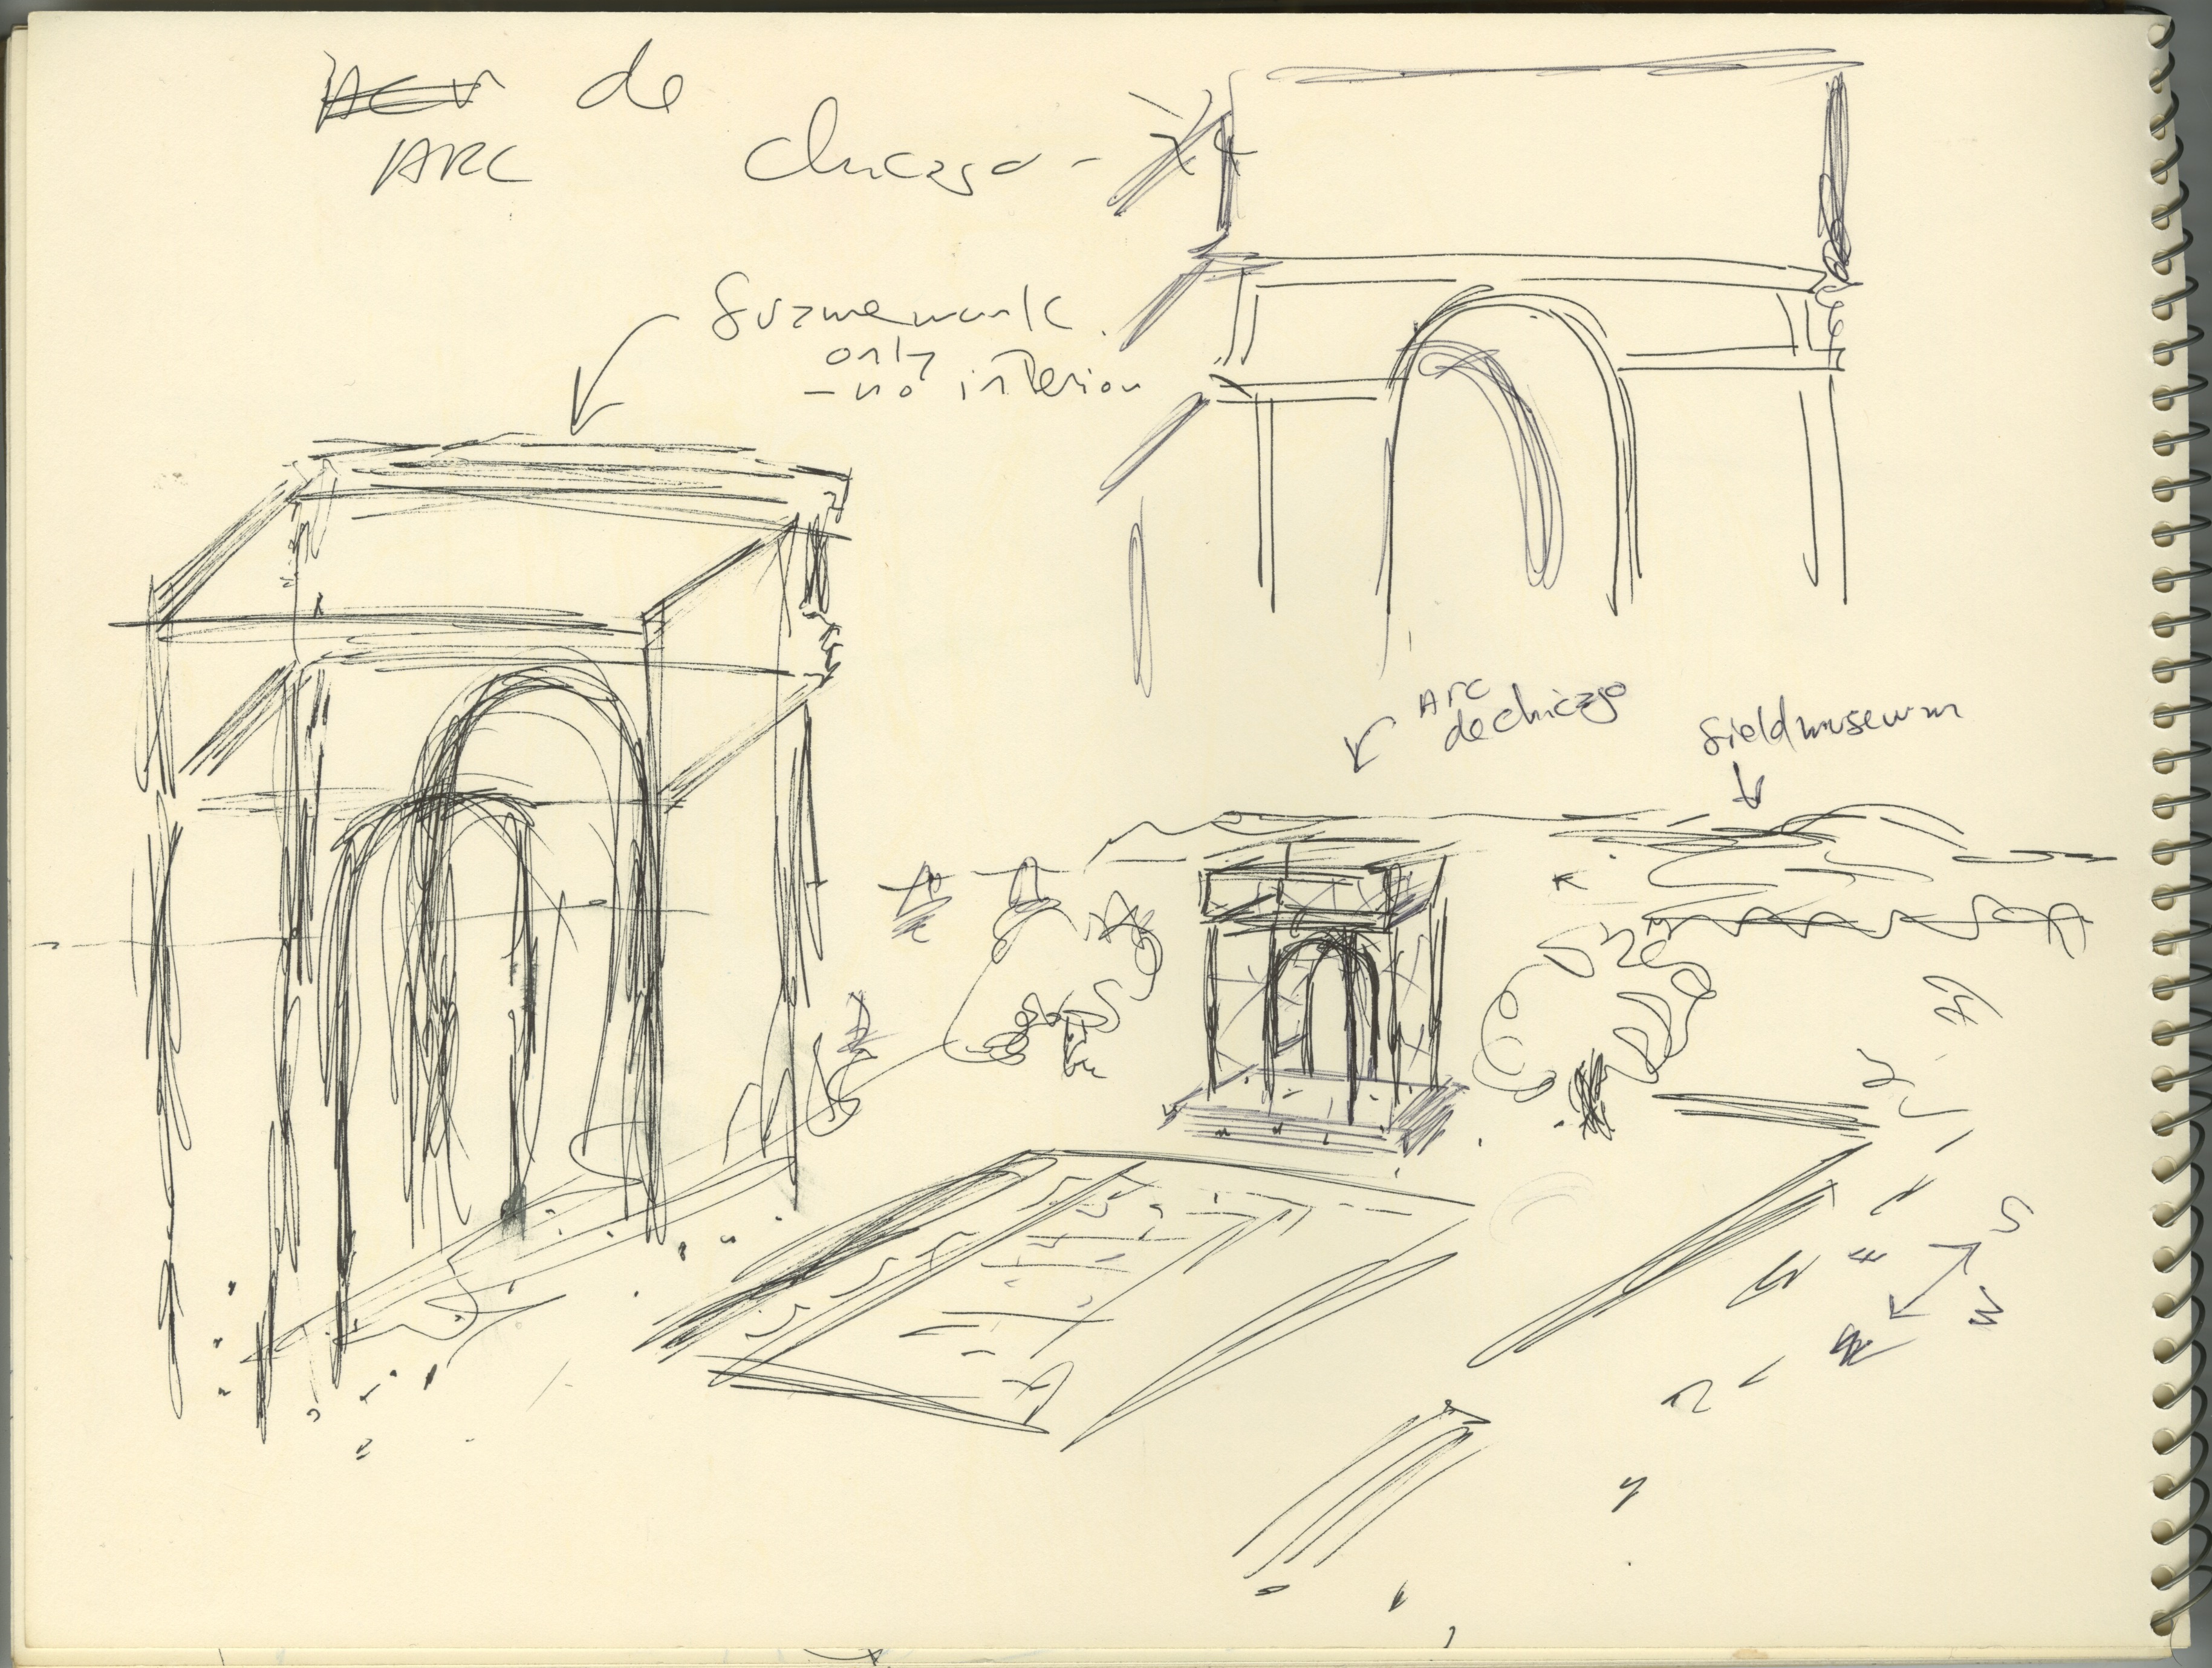 de
ARC chicago -
framework
only
- no interior
Arc
de chicago
field museum
S
E
W